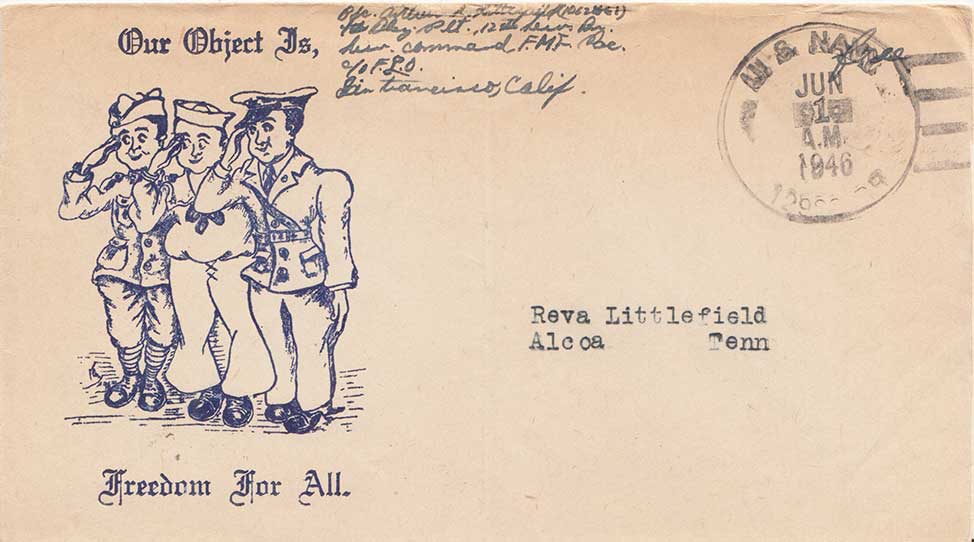 Our Object Is,
Freedom For All.
Pfc. Arthur A. (1062861)
Hq Plt., 12th Serv. Bn.
Serv. Command F.M.F. Pac.
c/o F.P.O.
San Francisco, Calif.
Free
U.S. NAVY
JUN
1
A.M.
1946
Reva Littlefield
Alcoa Tenn